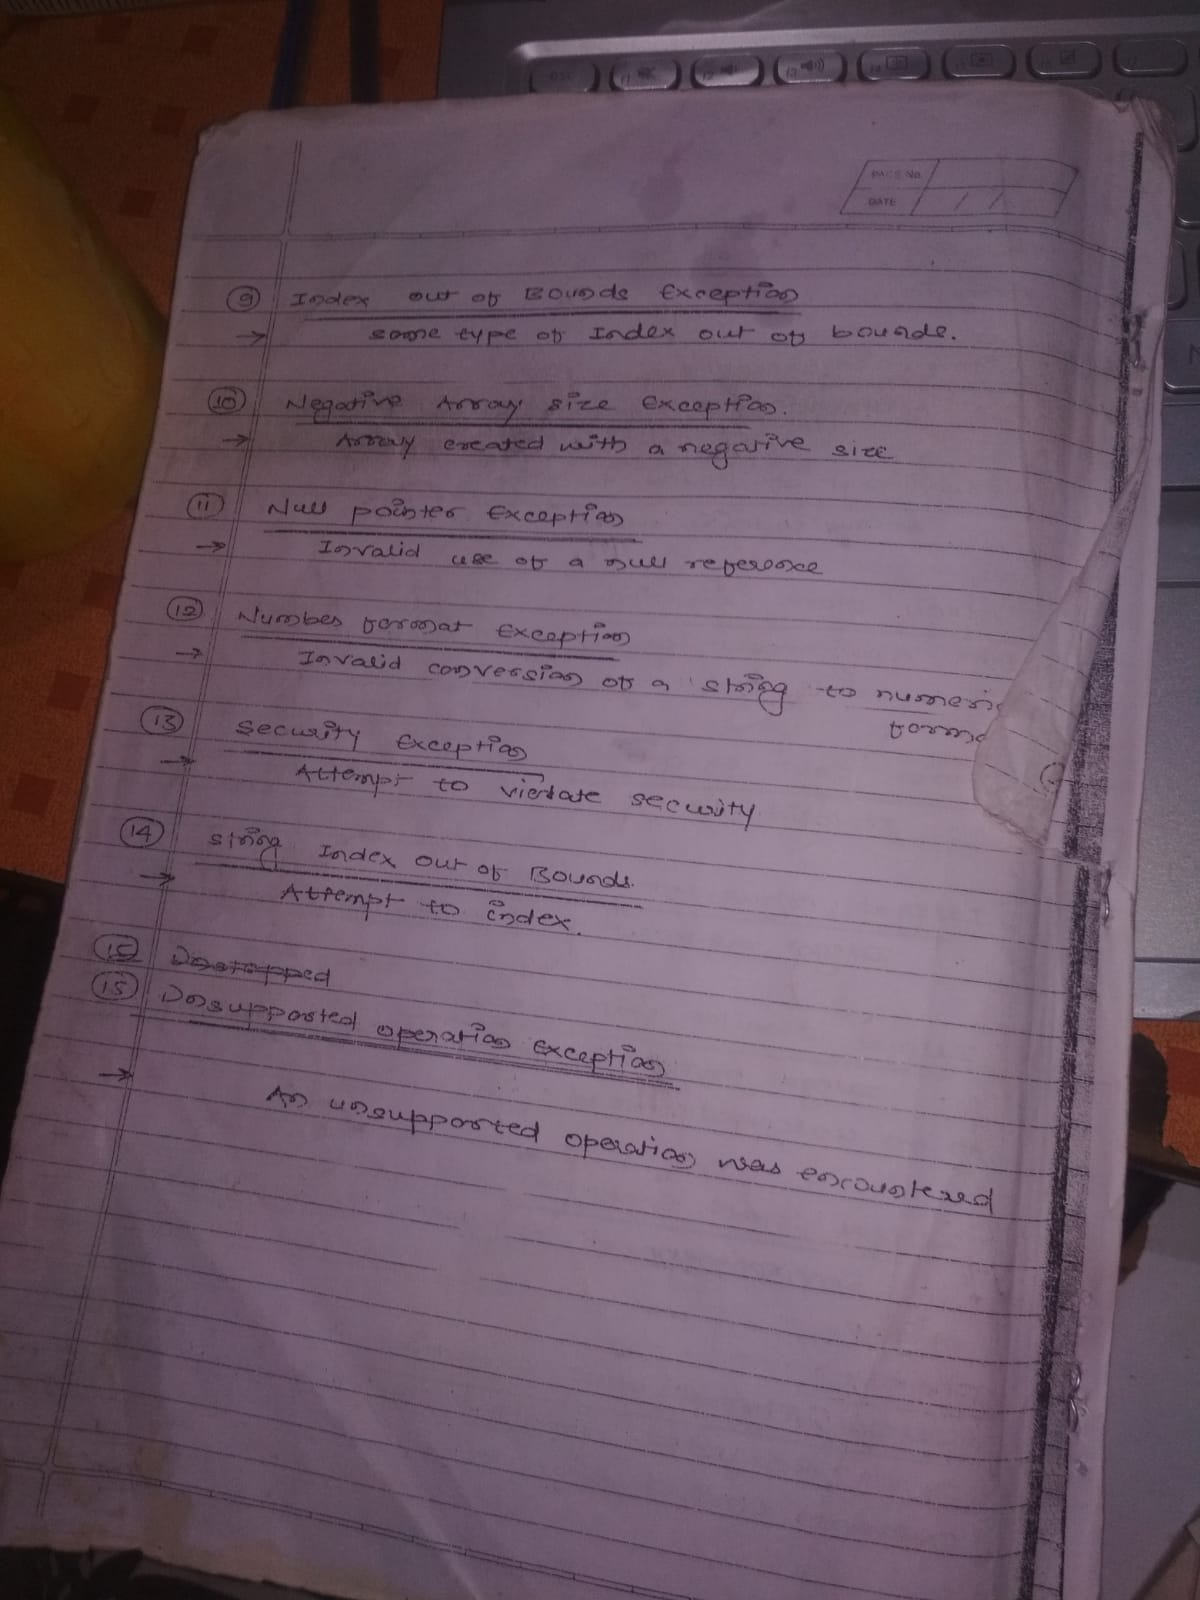 PAGE No.
DATE / /
9 Index out of Bounds Exception
→ some type of Index out of bounds.
10 Negative Array size Exception.
→ Array created with a negative size
11 Null pointer Exception
→ Invalid use of a null reference
12 Number format Exception
→ Invalid conversion of a string to numeric
13 Security Exception
→ Attempt to violate security
14 string Index out of Bounds.
→ Attempt to index.
15
15 Unsupported operation Exception
→ An unsupported operation was encountered